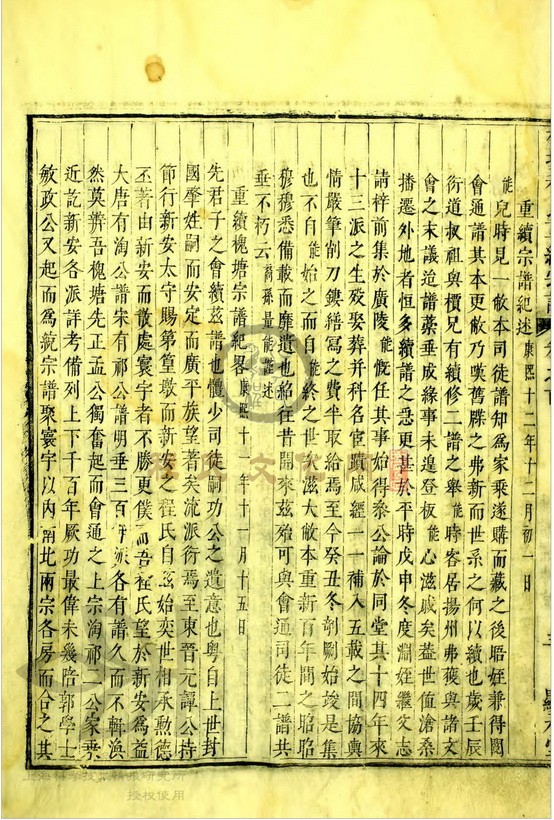 重續宗譜紀述康熙十二年十二月初一日
能兒時見一敝本司徒譜知爲家乘遂購而藏之後晤姪兼得閱
會通譜其本更敝乃嘆舊牒之弗新而世系之何以續也歲壬辰
衍道叔祖與檟兄有續修二譜之舉能時客居揚州弗獲與諸文
會之末議迨譜藁垂成緣事未遑登板能心滋戚矣蓋世值滄桑
播遷外地者恒多續譜之念更甚於平時戊申冬度淵姪繼文志
請梓前集於廣陵能慨任其事始得叅公論於同堂其十四年來
十三派之生歿娶葬并科名宦蹟咸經一一補入五載之間協輿
情嚴筆削刀鏤繕寫之費半取給焉至今癸丑冬剞劂始竣是集
也不自能始之而自能終之世次滋大敝本重新百年間之昭昭
穆穆悉備載而靡遺也紹往昔開來茲殆可與會通司徒二譜共
垂不朽云裔孫量能謹述
重續槐塘宗譜紀畧康熙十一年十一月十五日
先君子之會續茲譜也體少司徒嗣功公之遺意也粤自上世封
國肇姓嗣而安定而廣平族望著矣流派衍焉至東晉元譚公持
節行新安太守賜第篁墩而新安之程氏自茲始奕世相承勲德
丕著由新安而散處寰宇者不勝更僕而吾程氏望於新安爲益
大唐有淘公譜宋有祁公譜明垂三百年派各有譜久而不輯渙
然莫辨吾槐塘先正孟公獨奮起而會通之上宗淘祁二公家乘
近訖新安各派詳考備列上下千百年厥功最偉未幾陪郭學士
敏政公又起而爲統宗譜聚寰宇以內南北兩宗各房而合之其
上海科學技術情報研究所
授权使用